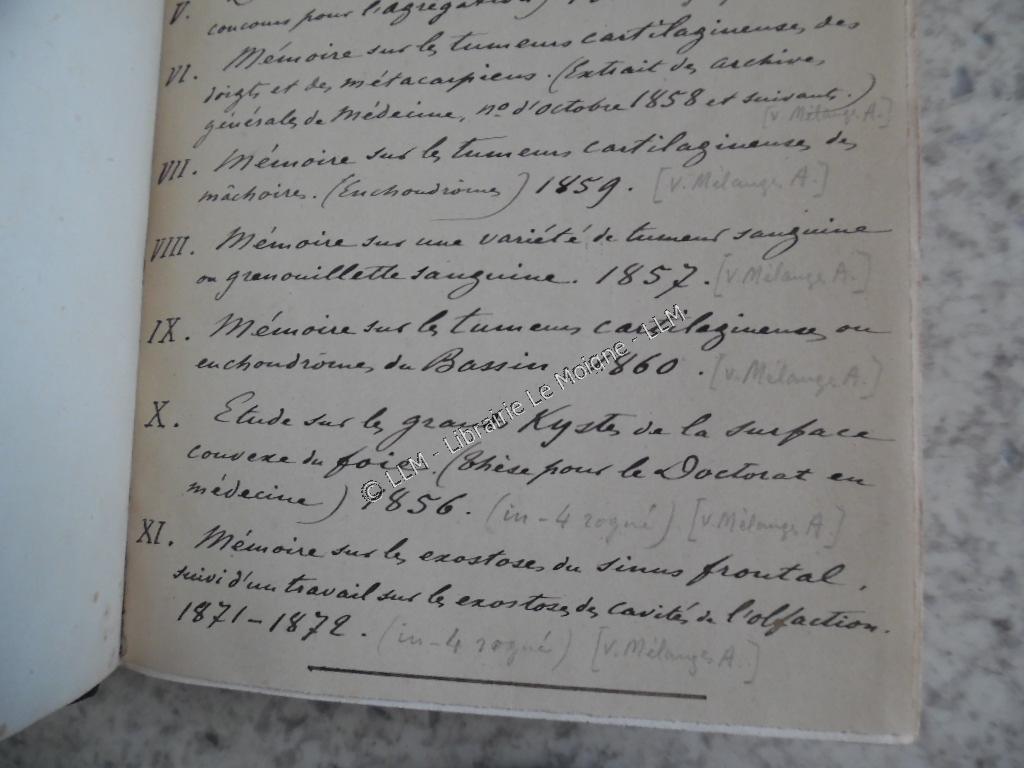 V.
concours pour l'agrégation)
VI. Mémoire sur les tumeurs cartilagineuses des
doigts et des métacarpiens. (Extrait des archives
générales de Médecine, no d'octobre 1858 et suivants.)
[v. Mélanges A.]
VII. Mémoire sur les tumeurs cartilagineuses des
mâchoires. (Enchondrômes) 1859. [v. Mélanges A.]
VIII. Mémoire sur une variété de tumeur sanguine
ou grenouillette sanguine. 1857. [v. Mélanges A.]
IX. Mémoire sur les tumeurs cartilagineuses ou
enchondrômes du Bassin 1860. [v. Mélanges A.]
X. Etude sur les grands Kystes de la surface
convexe du foie. (Thèse pour le Doctorat en
médecine) 1856. (in-4 rogné) [v. Mélanges A.]
XI. Mémoire sur les exostoses du sinus frontal,
suivi d'un travail sur les exostoses des cavités de l'olfaction.
1871-1872. (in-4 rogné) [v. Mélanges A.]
© LLM - Librairie Le Moigne - LLM